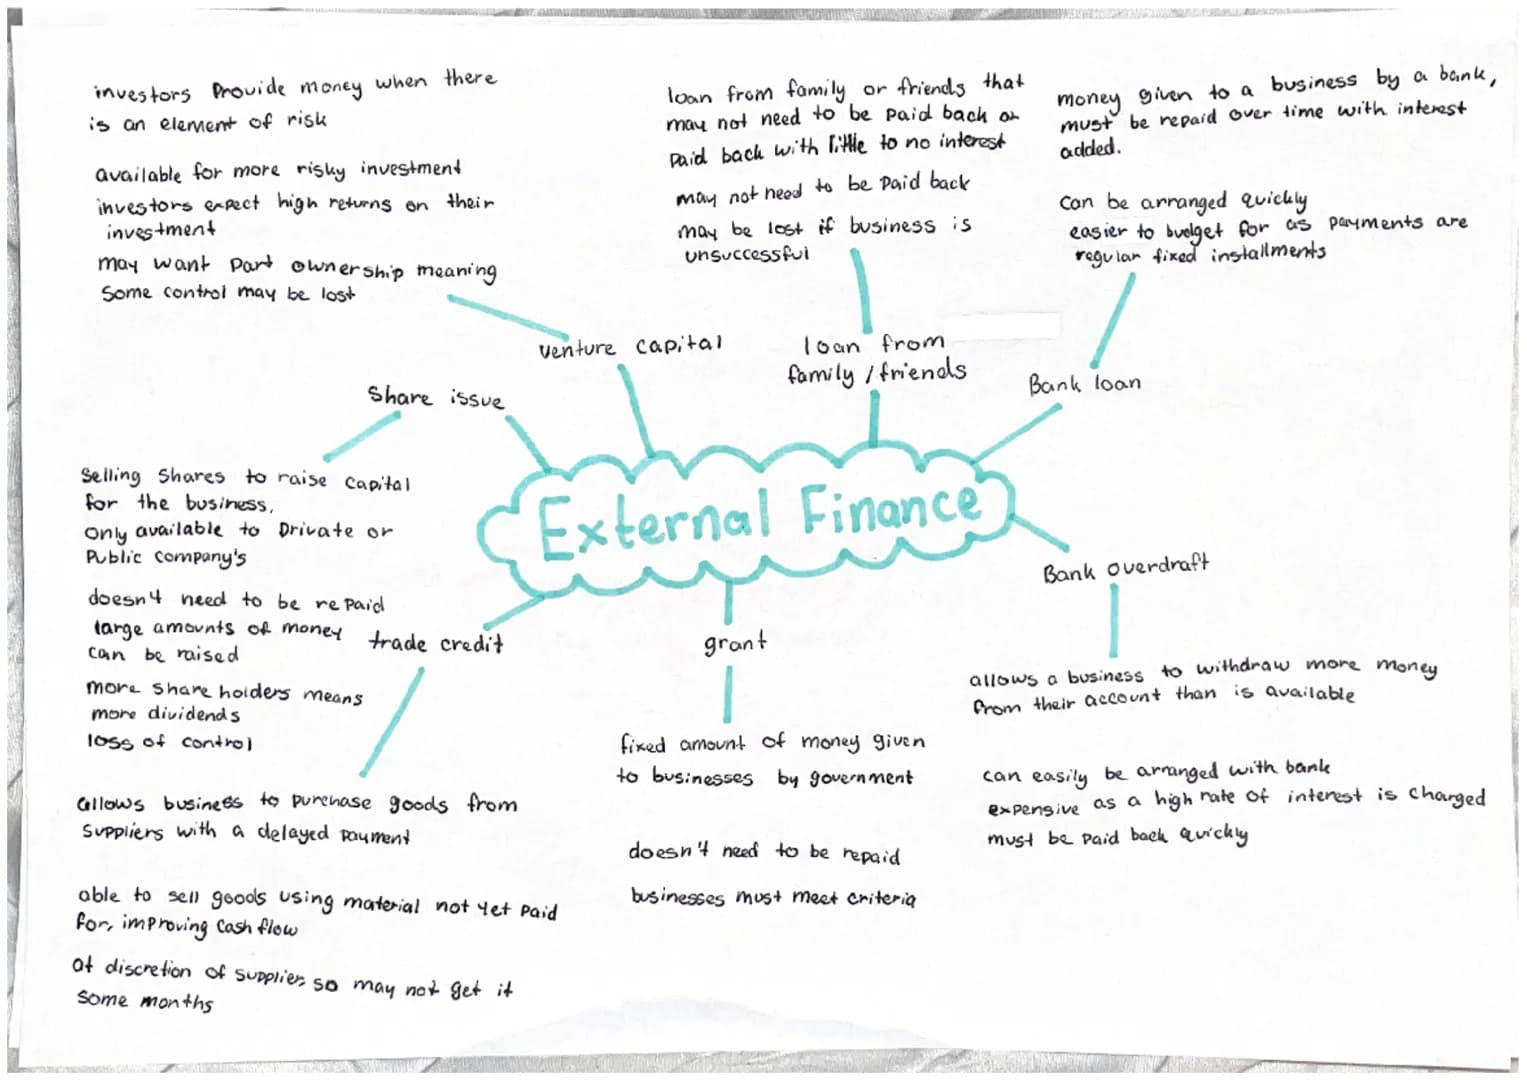 investors Provide money when there
is an element of risk
available for more risky investment
investors expect high returns on their
investment
may want part ownership meaning
Some control may be lost
venture capital
loan from family or friends that
may not need to be paid back or
paid back with little to no interest
may not need to be paid back
may be lost if business is
unsuccessful
loan from
family / friends
money given to a business by a bank,
must be repaid over time with interest
added.
can be arranged quickly
easier to budget for as payments are
regular fixed installments
Bank loan
Share issue
Selling Shares to raise capital
for the business,
only available to Private or
Public company's
doesn't need to be repaid
large amounts of money
can be raised
more share holders means
more dividends
loss of control
External Finance
Bank overdraft
allows a business to withdraw more money
from their account than is available
can easily be arranged with bank
expensive as a high rate of interest is charged
must be paid back quickly
trade credit
allows business to purchase goods from
suppliers with a delayed payment
able to sell goods using material not yet paid
for, improving cash flow
at discretion of supplier so may not get it
some months
grant
fixed amount of money given
to businesses by government
doesn't need to be repaid
businesses must meet criteria